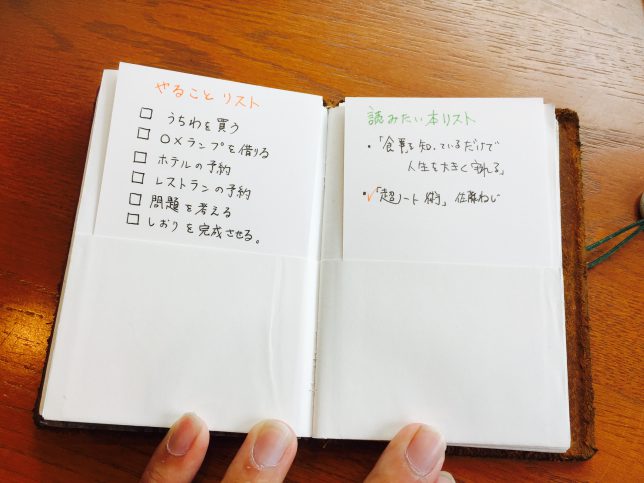 やることリスト
□ うちわを買う
□ ○×ランプを借りる
□ ホテルの予約
□ レストランの予約
□ 問題を考える
□ しおりを完成させる。
読みたい本リスト
・「食事を知っているだけで
人生を大きく守れる」
・✓「超ノート術」佐藤ねじ